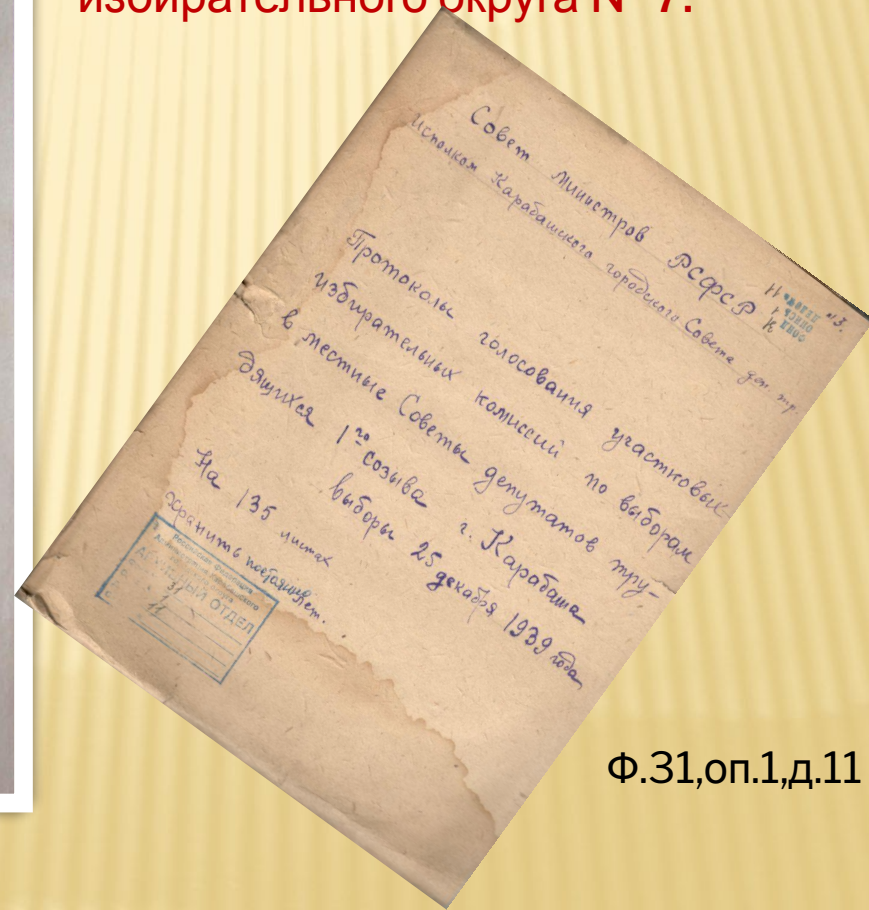 избирательного округа № 7.
Совет Министров РСФСР
Исполком Карабашского городского Совета деп. тр.
Протоколы голосования участковых
избирательных комиссий по выборам
в местные Советы депутатов тру-
дящихся 1го созыва г. Карабаша
выборы 25 декабря 1939 года
На 135 листах
хранить постоянно лет.
АРХИВНЫЙ ОТДЕЛ
31
1
11
Ф.31,оп.1,д.11